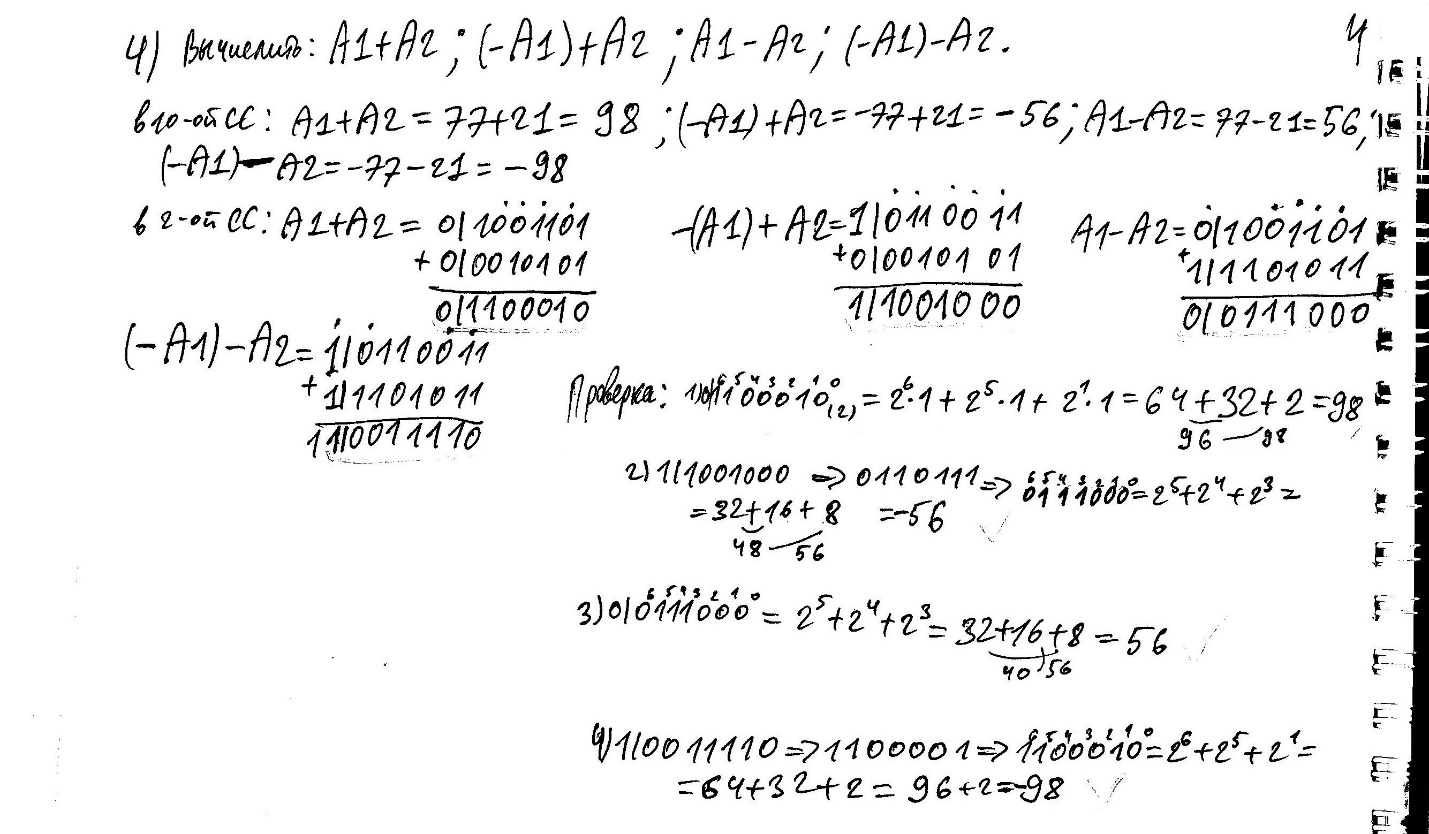 4) Вычислить: A1+A2; (-A1)+A2; A1-A2; (-A1)-A2. 4
в 10-ой СС: A1+A2=77+21=98; (-A1)+A2=-77+21=-56; A1-A2=77-21=56;
(-A1)-A2=-77-21=-98
в 2-ой СС: A1+A2= 0|1001101
+0|0010101
0|1100010
-(A1)+A2=1|0110011
+0|0010101
1|1001000
A1-A2=0|1001101
+1|1101011
0|0111000
(-A1)-A2=1|0110011
+1|1101011
11|0011110
Проверка: 1) 1100010(2)=2⁶·1+2⁵·1+2¹·1=64+32+2=98
96 98
2) 1|1001000 => 0110111 => 0111000=2⁵+2⁴+2³=
=32+16+8 =-56
48 56
3) 0|0111000=2⁵+2⁴+2³=32+16+8=56
40 56
4) 1|0011110=>1100001=>1100010=2⁶+2⁵+2¹=
=64+32+2=96+2=-98